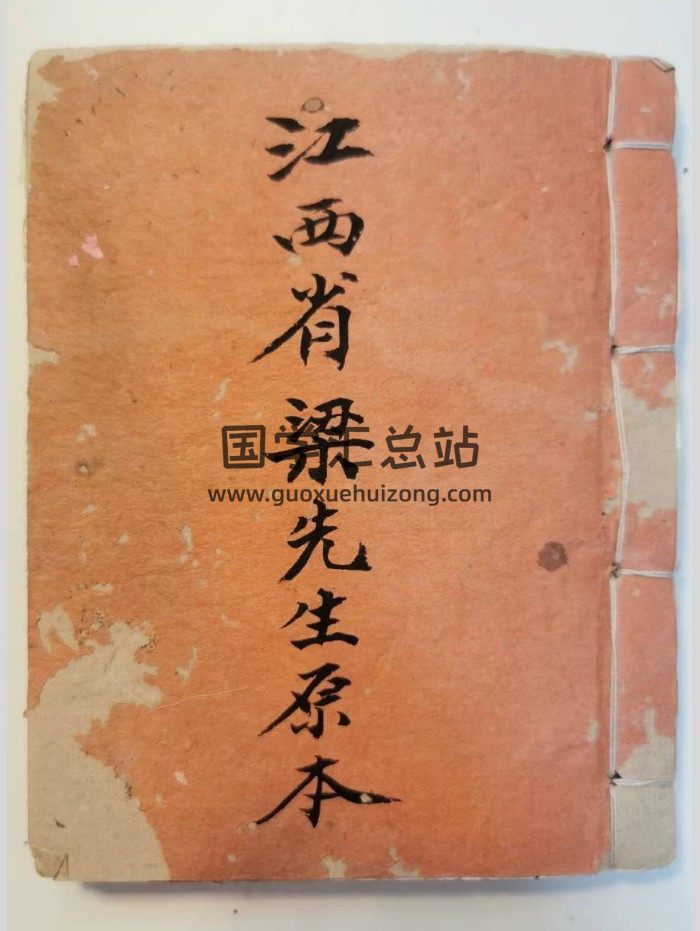 江西省梁先生原本
国学汇总站
www.guoxuehuizong.com